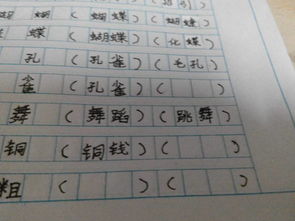 蝴 蝴（蝴蝶）（蝴蝶）
蝶（蝴蝶）（化蝶）
孔（孔雀）（毛孔）
雀（孔雀）（ ）
舞（舞蹈）（跳舞）
铜（铜钱）（ ）
粗（ ）（ ）